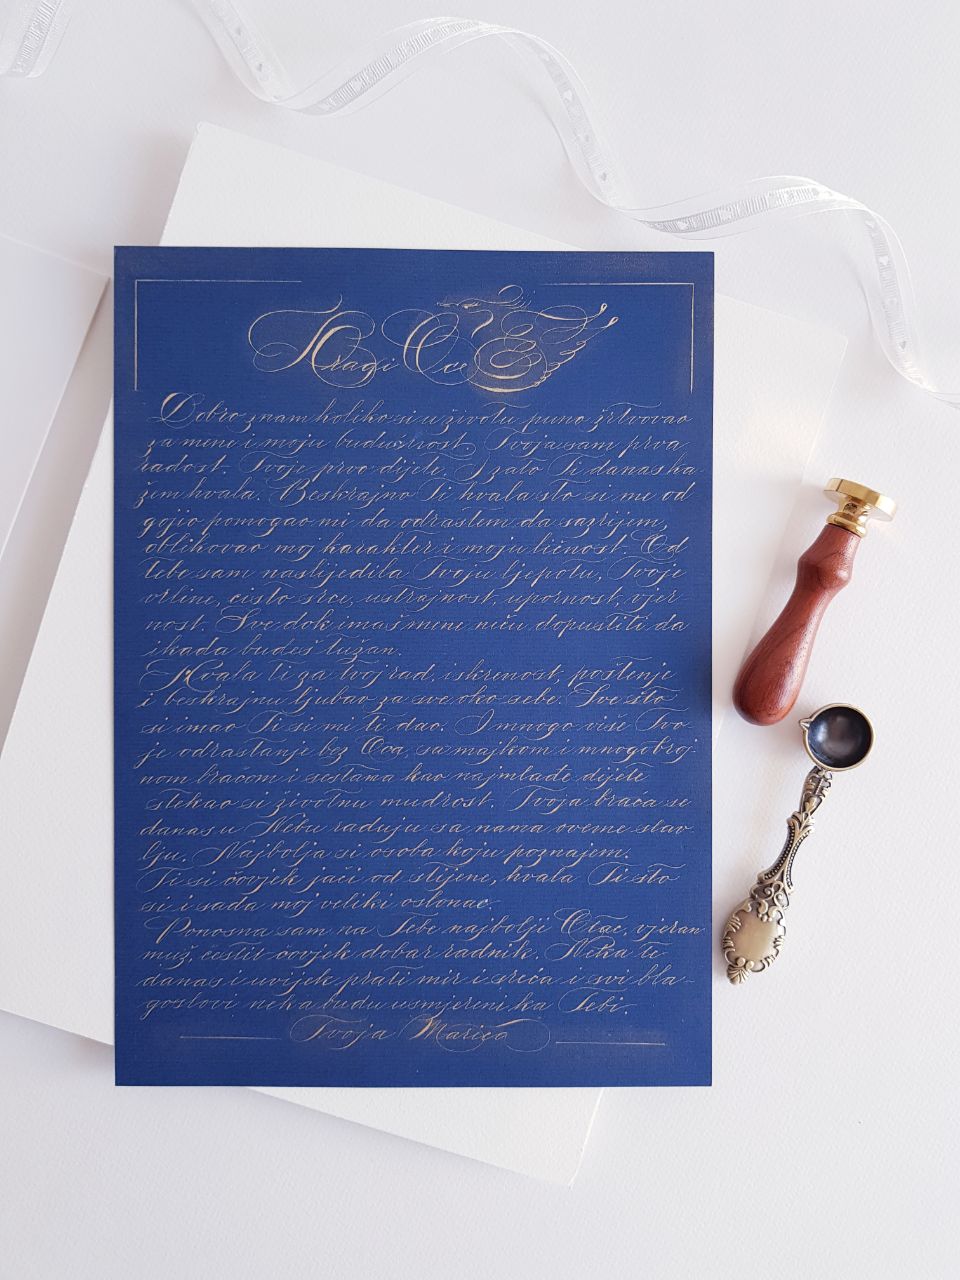 Dragi Oče
Dobro znam koliko si u životu puno žrtvovao
za mene i moju budućnost. Tvoja sam prva
radost. Tvoje prvo dijete. I zato Ti danas ka
žem hvala. Beskrajno Ti hvala što si me od
gojio pomogao mi da odrastem da sazrijem,
oblikovao moj karakter i moju ličnost. Od
tebe sam naslijedila Tvoju ljepotu, Tvoje
vrline, čisto srce, ustrajnost, upornost, vjer
nost. Sve dok imaš mene neću dopustiti da
ikada budeš tužan.
Hvala ti za tvoj rad, iskrenost, poštenje
i beskrajnu ljubav za sve oko sebe. Sve što
si imao Ti si mi ti dao. I mnogo više Tvo-
je odrastanje bez Oca, sa majkom i mnogobroj-
nom braćom i sestama kao najmlađe dijete
stekao si životnu mudrost. Tvoja braća se
danas u Nebu raduju sa nama ovome slav
lju. Najbolja si osoba koju poznajem.
Ti si čovjek jači od stijene, hvala Ti što
si i sada moj veliki oslonac.
Ponosna sam na Tebe najbolji Otac, vjeran
muž, čestit čovjek dobar radnik. Neka te
danas i uvijek prati mir i sreća i svi bla-
goslovi neka budu usmjereni ka Tebi.
Tvoja Marica